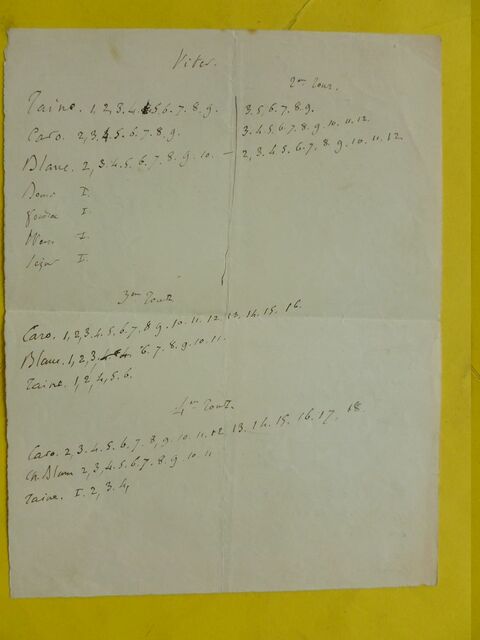 Vitet.
2me Tour.
Taine. 1, 2, 3. 4. 5. 6. 7. 8. 9. 3. 5, 6. 7. 8. 9.
Caro. 2, 3. 4. 5. 6. 7. 8. 9. 3. 4. 5. 6. 7. 8. 9. 10. 11. 12.
Blanc. 2, 3. 4. 5. 6. 7. 8. 9. 10. — 2, 3. 4. 5. 6. 7. 8. 9. 10. 11. 12.
I.
I.
I.
I.
3me Tour
Caro. 1, 2, 3. 4. 5. 6. 7. 8. 9. 10. 11. 12. 13. 14. 15. 16.
Blanc. 1, 2, 3, 6. 7. 8. 9. 10. 11.
Taine. 1, 2, 4, 5. 6.
4me Tour.
Caro. 2, 3. 4. 5. 6. 7. 8, 9. 10. 11. 12. 13. 14. 15. 16. 17. 18.
Ch. Blanc 2, 3, 4. 5. 6. 7. 8. 9. 10. 11
Taine. I. 2, 3. 4,